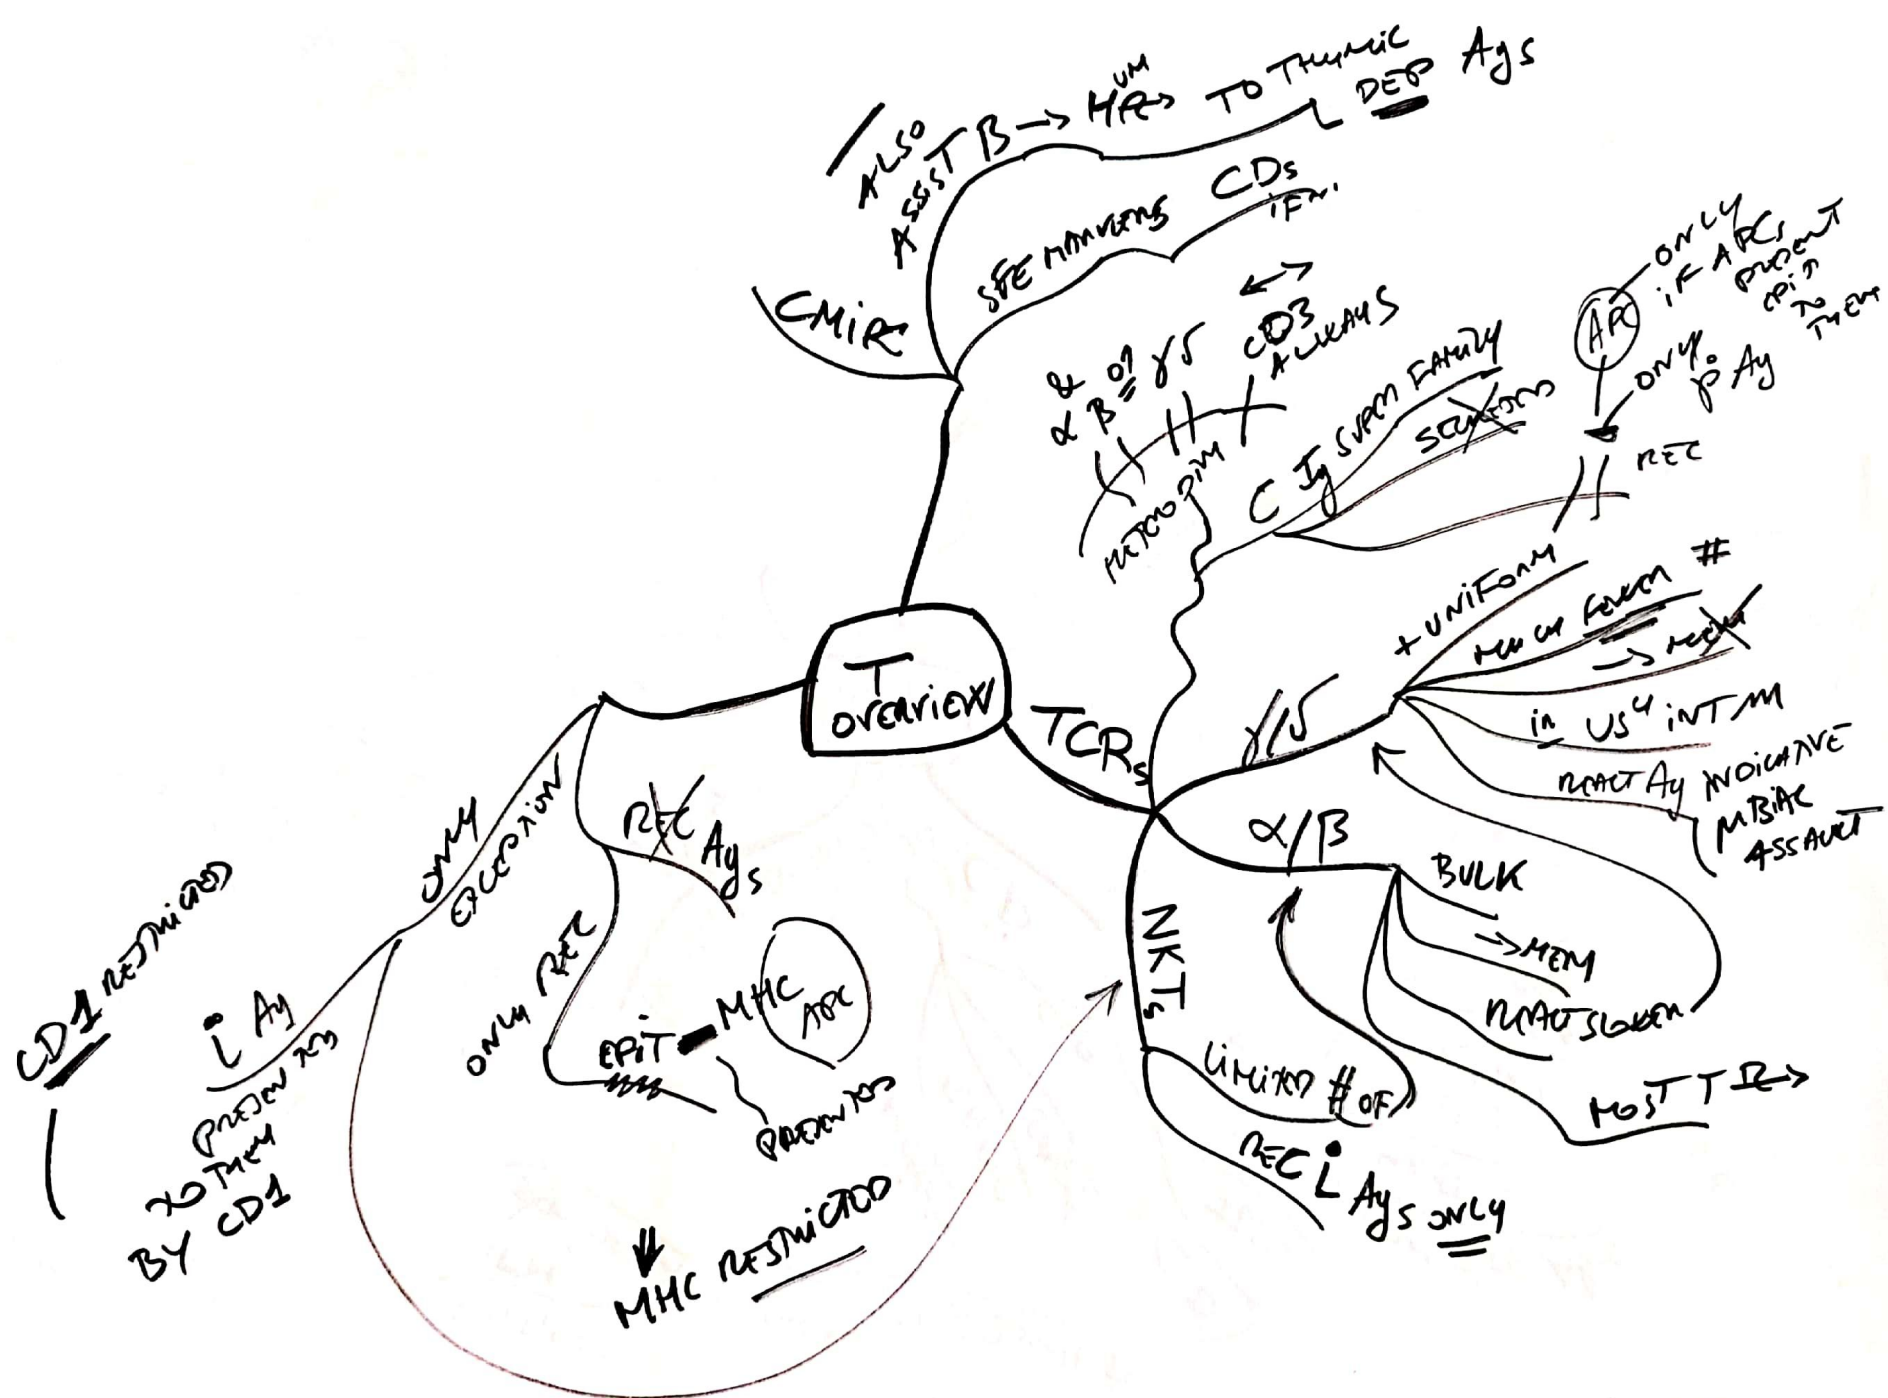 T
OVERVIEW
CMIR
ALSO
ASSIST B → HUM R → TO THYMIC
DEP Ags
SEE MARKERS
CDs
IFN.
TCRs
&
α β or γδ
CD3
ALWAYS
HETERODIM
C Ig SUPER FAMILY
SECRETED
REC
APC
ONLY
IF APCs
PRESENT
EPIT
TO
THEM
ONLY
p Ag
γ/δ
+ UNIFORM
MUCH FEWER #
→ MEM
in US4 INT MM
REACT Ag INDICATIVE
MBIAL
ASSAULT
α/β
BULK
→ MEM
REACT SLOWER
MOST T R →
NKTs
LIMITED # OF
REC L Ags ONLY
REC Ags
ONLY REC
EPIT - MHC
APC
PRESENTED
⇓
MHC RESTRICTED
ONLY
EXCEPTION
L Ag
PRESENTED
TO THEM
BY CD1
CD1 RESTRICTED